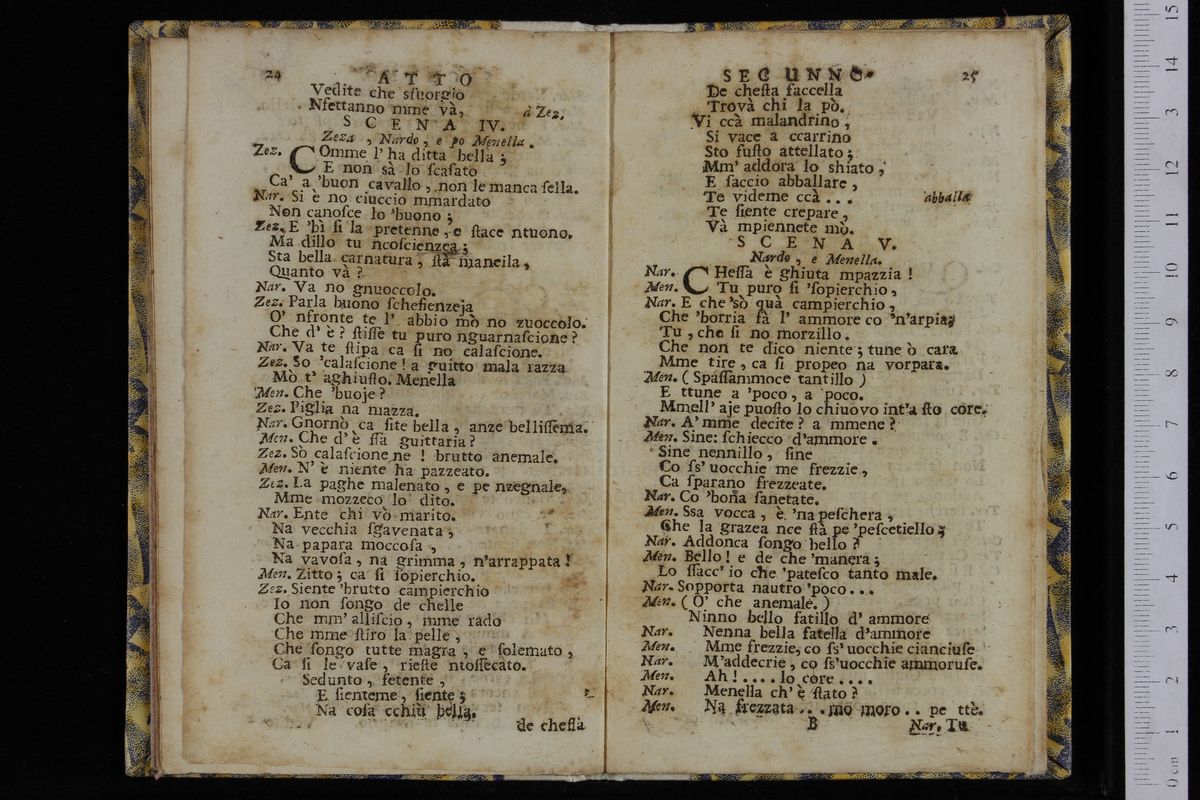 24 ATTO
Vedite che sfuorgio
Nfettanno mme và, à Zez.
SCENA IV.
Zeza, Nardo, e po Menella.
Zez. COmme l'ha ditta bella;
E non sà lo scasato
Ca' a 'buon cavallo, non le manca sella.
Nar. Si è no ciuccio mmardato
Non canosce lo 'buono;
Zez. E 'bì si la pretenne, e stace ntuono.
Ma dillo tu ncoscienzea;
Sta bella carnatura, stà mancila,
Quanto và?
Nar. Va no gnuoccolo.
Zez. Parla buono schefienzeja
O' nfronte te l' abbio mò no zuoccolo.
Che d' è? stisse tu puro nguarnascione?
Nar. Va te stipa ca si no calascione.
Zez. So 'calascione! a guitto mala razza
Mò t' aghiusto. Menella
Men. Che 'buoje?
Zez. Piglia na mazza.
Nar. Gnornò ca site bella, anze bellissema.
Men. Che d'è ssà guittaria?
Zez. Sò calascione ne! brutto anemale.
Men. N' è niente ha pazzeato.
Zez. La paghe malenato, e pe nzegnale,
Mme mozzeco lo dito.
Nar. Ente chi vò marito.
Na vecchia sgavenata,
Na papara moccosa,
Na vavosa, na grimma, n'arrappata!
Men. Zitto; ca si sopierchio.
Zez. Siente 'brutto campierchio
Io non songo de chelle
Che mm' alliscio, mme rado
Che mme stiro la pelle,
Che songo tutte magra, e solemato,
Ca si le vase, rieste ntossecato.
Sedunto, fetente,
E sienteme, siente;
Na cosa cchiù bella.
de chesta
SECUNNO. 25
De chesta faccella
Trovà chi la pò.
Vi ccà malandrino,
Si vace a ccarrino
Sto fusto attellato;
Mm' addora lo shiato,
E faccio abballare,
Te videme ccà... abballa
Te siente crepare,
Và mpiennete mò.
SCENA V.
Nardo, e Menella.
Nar. CHessa è ghiuta mpazzia!
Men. Tu puro si 'sopierchio,
Nar. E che 'sò quà campierchio,
Che 'borria fà l' ammore co 'n'arpia;
Tu, che si no morzillo.
Che non te dico niente; tune ò cara
Mme tire, ca si propeo na vorpara.
Men. (Spassammoce tantillo)
E ttune a 'poco, a 'poco.
Mmell' aje puosto lo chiuovo int'a sto core.
Nar. A' mme decite? a mmene?
Men. Sine: schiecco d'ammore.
Sine nennillo, sine
Co ss' uocchie me frezzie,
Ca sparano frezzeate.
Nar. Co 'bona sanetate.
Men. Ssa vocca, è 'na peschera,
Che la grazea nce stà pe 'pescetiello;
Nar. Addonca songo bello?
Men. Bello! e de che 'manera;
Lo ssacc' io che 'patesco tanto male.
Nar. Sopporta nautro 'poco...
Men. (O' che anemale.)
Ninno bello fatillo d' ammore
Nar. Nenna bella fatella d'ammore
Men. Mme frezzie, co ss' uocchie cianciuse
Nar. M'addecrie, co ss'uocchie ammoruse.
Men. Ah!.... lo core....
Nar. Menella ch' è stato?
Men. Na frezzata... mo moro.. pe ttè.
B Nar. Tu